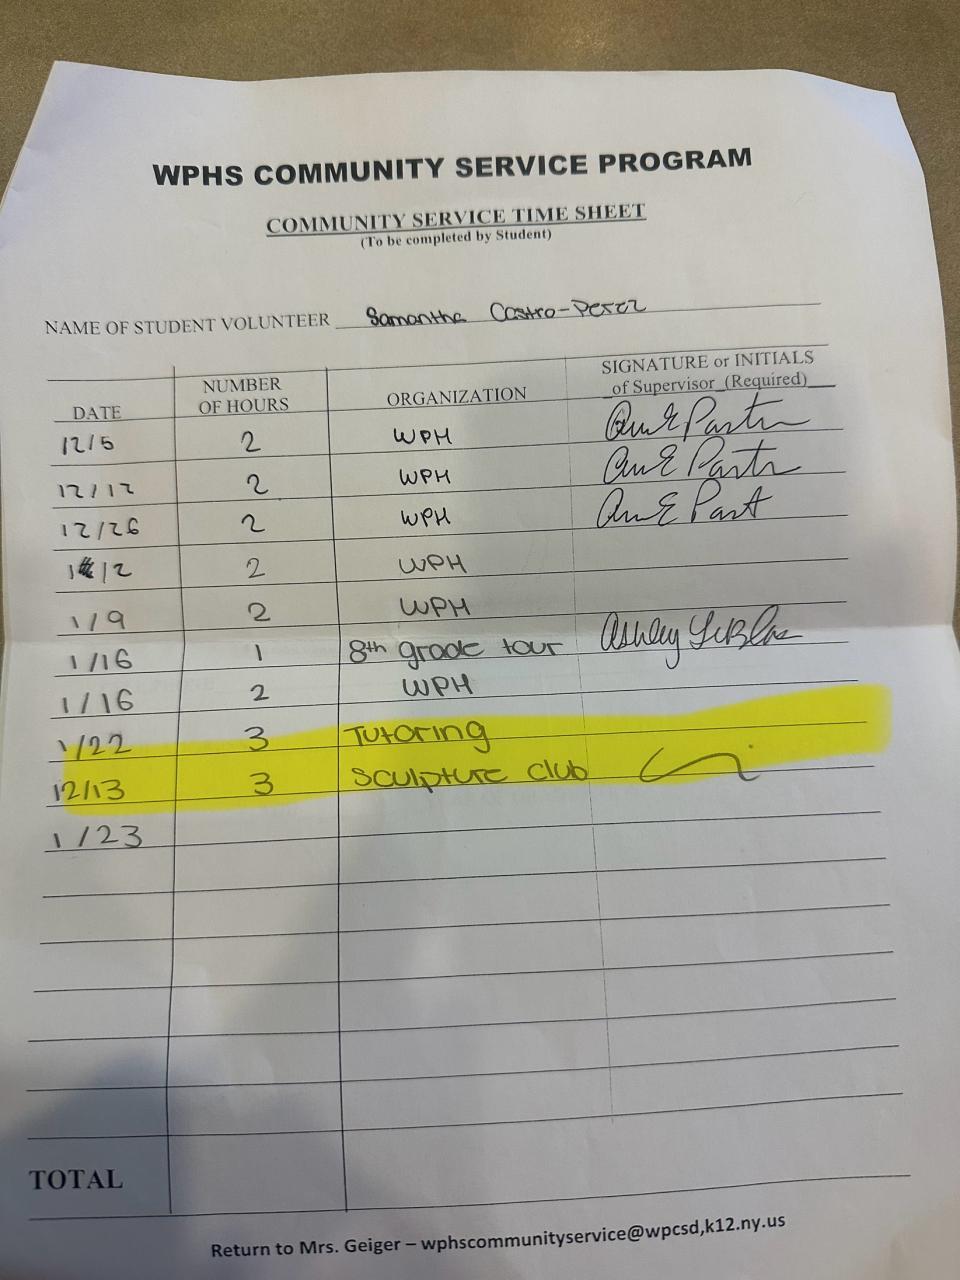 WPHS COMMUNITY SERVICE PROGRAM
COMMUNITY SERVICE TIME SHEET
(To be completed by Student)
NAME OF STUDENT VOLUNTEER Samantha Castro-Perez
DATE NUMBER OF HOURS ORGANIZATION SIGNATURE or INITIALS of Supervisor (Required)
12/5 2 WPH
12/12 2 WPH
12/26 2 WPH
1/2 2 WPH
1/9 2 WPH
1/16 1 8th grade tour Ashley
1/16 2 WPH
1/22 3 Tutoring
12/13 3 Sculpture club
1/23
TOTAL
Return to Mrs. Geiger – wphscommunityservice@wpcsd,k12.ny.us